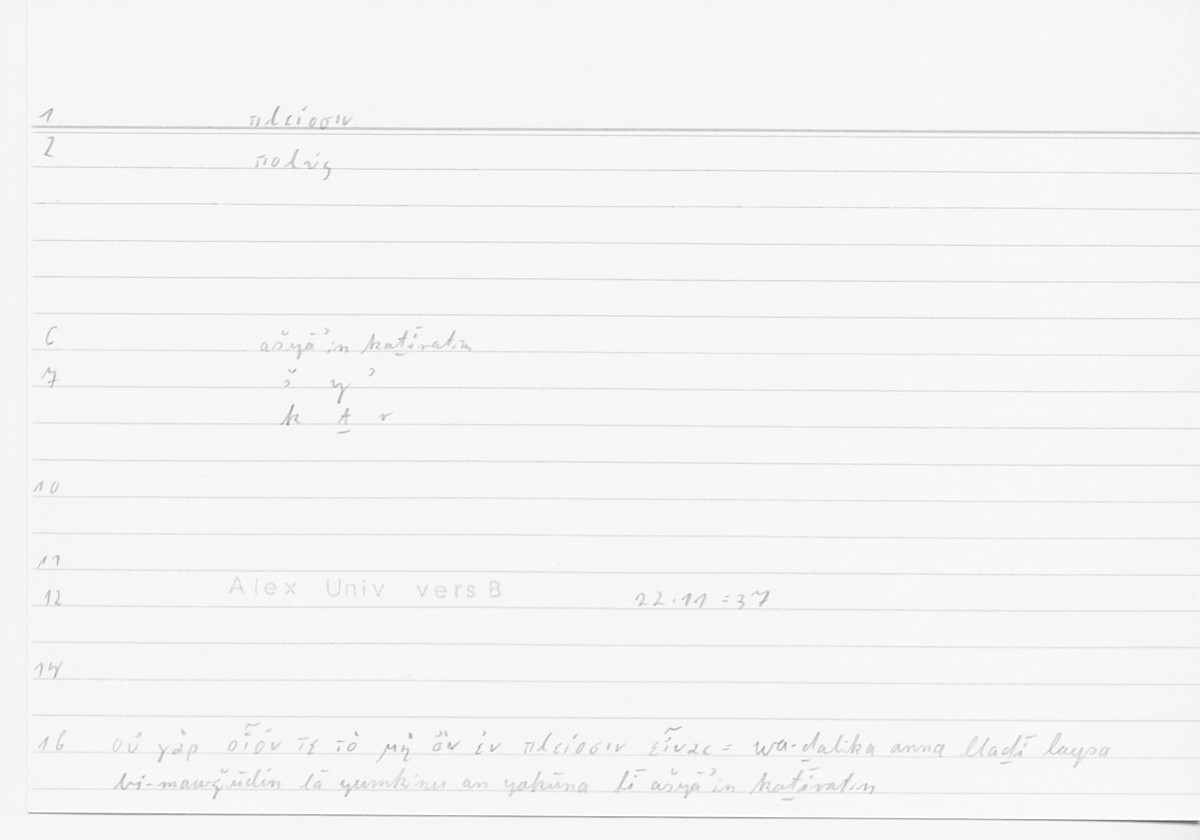 1 πλείοσιν
2 πολύς
6 ašyāʾin kaṯīratin
7 š y ʾ
k ṯ r
10
11
Alex Univ vers B
12 22.11 = 37
14
16 οὐ γὰρ οἷόν τε τὸ μὴ ὂν ἐν πλείοσιν εἶναι = wa-ḏalika anna llaḏī laysa
bi-mawǧūdin lā yumkinu an yakūna fī ašyāʾin kaṯīratin